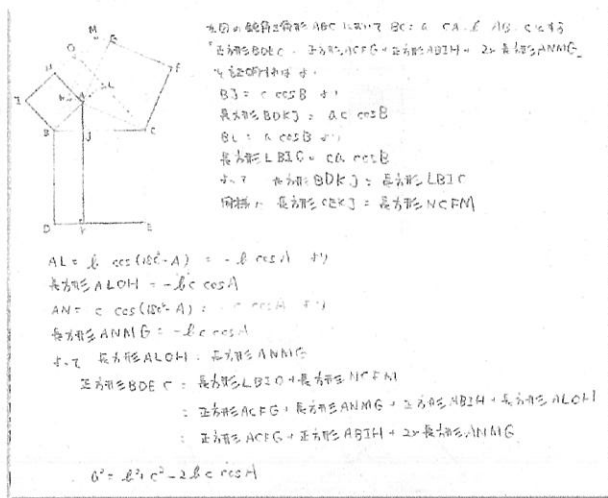 左図の鈍角三角形ABCにおいて BC=a CA=b AB=cとする
正方形BDEC = 正方形ACFG + 正方形ABIH + 2×長方形ANMG
を証明すればよい
BJ = c cosB より
長方形BDKJ = ac cosB
BL = a cosB より
長方形LBIO = ca cosB
よって 長方形BDKJ = 長方形LBIO
同様に 長方形CEKJ = 長方形NCFM
AL = b cos(180°-A) = -b cosA より
長方形ALOH = -bc cosA
AN = c cos(180°-A) = -c cosA より
長方形ANMG = -bc cosA
よって 長方形ALOH = 長方形ANMG
正方形BDEC = 長方形LBIO + 長方形NCFM
= 正方形ACFG + 長方形ANMG + 正方形ABIH + 長方形ALOH
= 正方形ACFG + 正方形ABIH + 2×長方形ANMG
a² = b² + c² - 2bc cosA
M
G
O
F
H
L
N
A
I
B
J
C
D
K
E